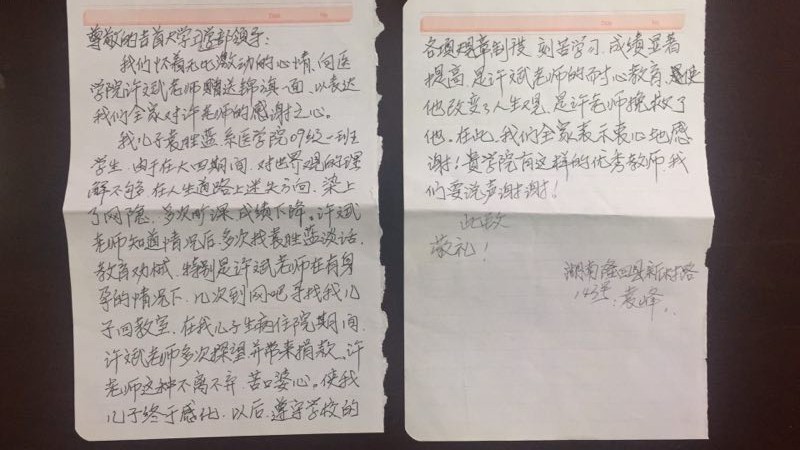 尊敬的吉首大学习学部领导：
我们怀着无比激动的心情，向医
学院许斌老师赠送锦旗一面，以表达
我们全家对许老师的感谢之心。
我儿子袁胜蓝系医学院09级一班
学生，由于在大四期间，对世界观的理
解不够，在人生道路上迷失方向，染上
了网隐，多次旷课，成绩下降。许斌
老师知道情况后，多次找袁胜蓝谈话，
教育劝械，特别是许斌老师在有身
孕的情况下，几次到网吧寻找我儿
子回教室，在我儿子生病住院期间，
许斌老师多次探望并带来捐款，许
老师这种不离不弃，苦口婆心。使我
儿子终于感化，以后，遵守学校的
各项规章制度，刻苦学习，成绩显著
提高，是许斌老师的耐心教育，使
他改变了人生观，是许老师挽救了
他，在此，我们全家表示衷心地感
谢！贵学院有这样的优秀教师，我
们要说声谢谢！
此致
敬礼！
湖南隆回县新村路
143号：袁峰